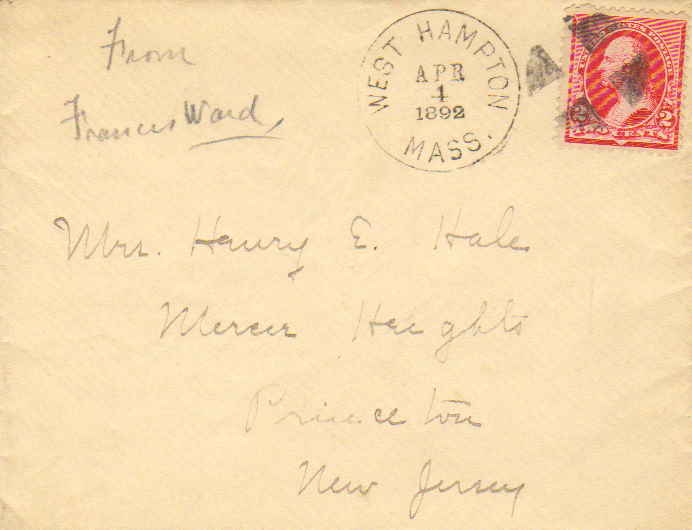 From
Frances Ward
WEST HAMPTON
APR
4
1892
MASS.
2 2
Mrs. Henry E. Hale
Mercer Heights
Princeton
New Jersey